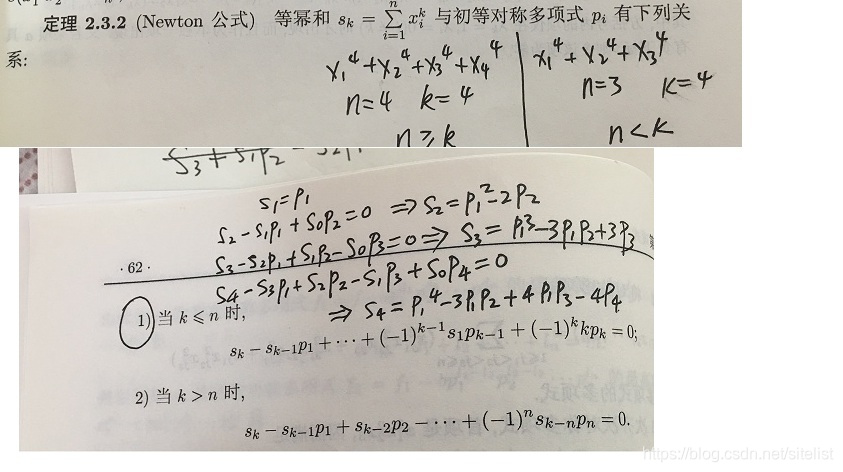 定理 2.3.2 (Newton 公式) 等幂和 s_k = \sum_{i=1}^{n} x_i^k 与初等对称多项式 p_i 有下列关
系:
x_1^4+x_2^4+x_3^4+x_4^4
n=4 k=4
n≥k
x_1^4+x_2^4+x_3^4
n=3 k=4
n<k
s_1=p_1
s_2-s_1p_1+s_0p_2=0 ⇒ s_2=p_1^2-2p_2
s_3-s_2p_1+s_1p_2-s_0p_3=0 ⇒ s_3=p_1^3-3p_1p_2+3p_3
·62·
s_4-s_3p_1+s_2p_2-s_1p_3+s_0p_4=0
⇒ s_4=p_1^4-3p_1p_2+4p_1p_3-4p_4
1) 当 k ≤ n 时,
s_k - s_{k-1}p_1 + ··· + (-1)^{k-1}s_1p_{k-1} + (-1)^k kp_k = 0;
2) 当 k > n 时,
s_k - s_{k-1}p_1 + s_{k-2}p_2 - ··· + (-1)^n s_{k-n}p_n = 0.
https://blog.csdn.net/sitelist